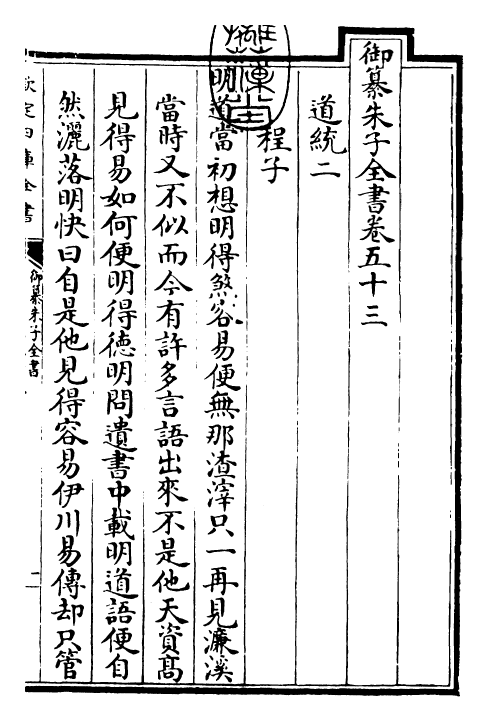 御纂朱子全書卷五十三
道統二
程子
明道當初想明得煞容易便無那渣滓只一再見濂溪
當時又不似而今有許多言語出來不是他天資髙
見得易如何便明得德明問遺書中載明道語便自
然灑落明快曰自是他見得容易伊川易傳却只管
欽定四庫全書
御纂朱子全書